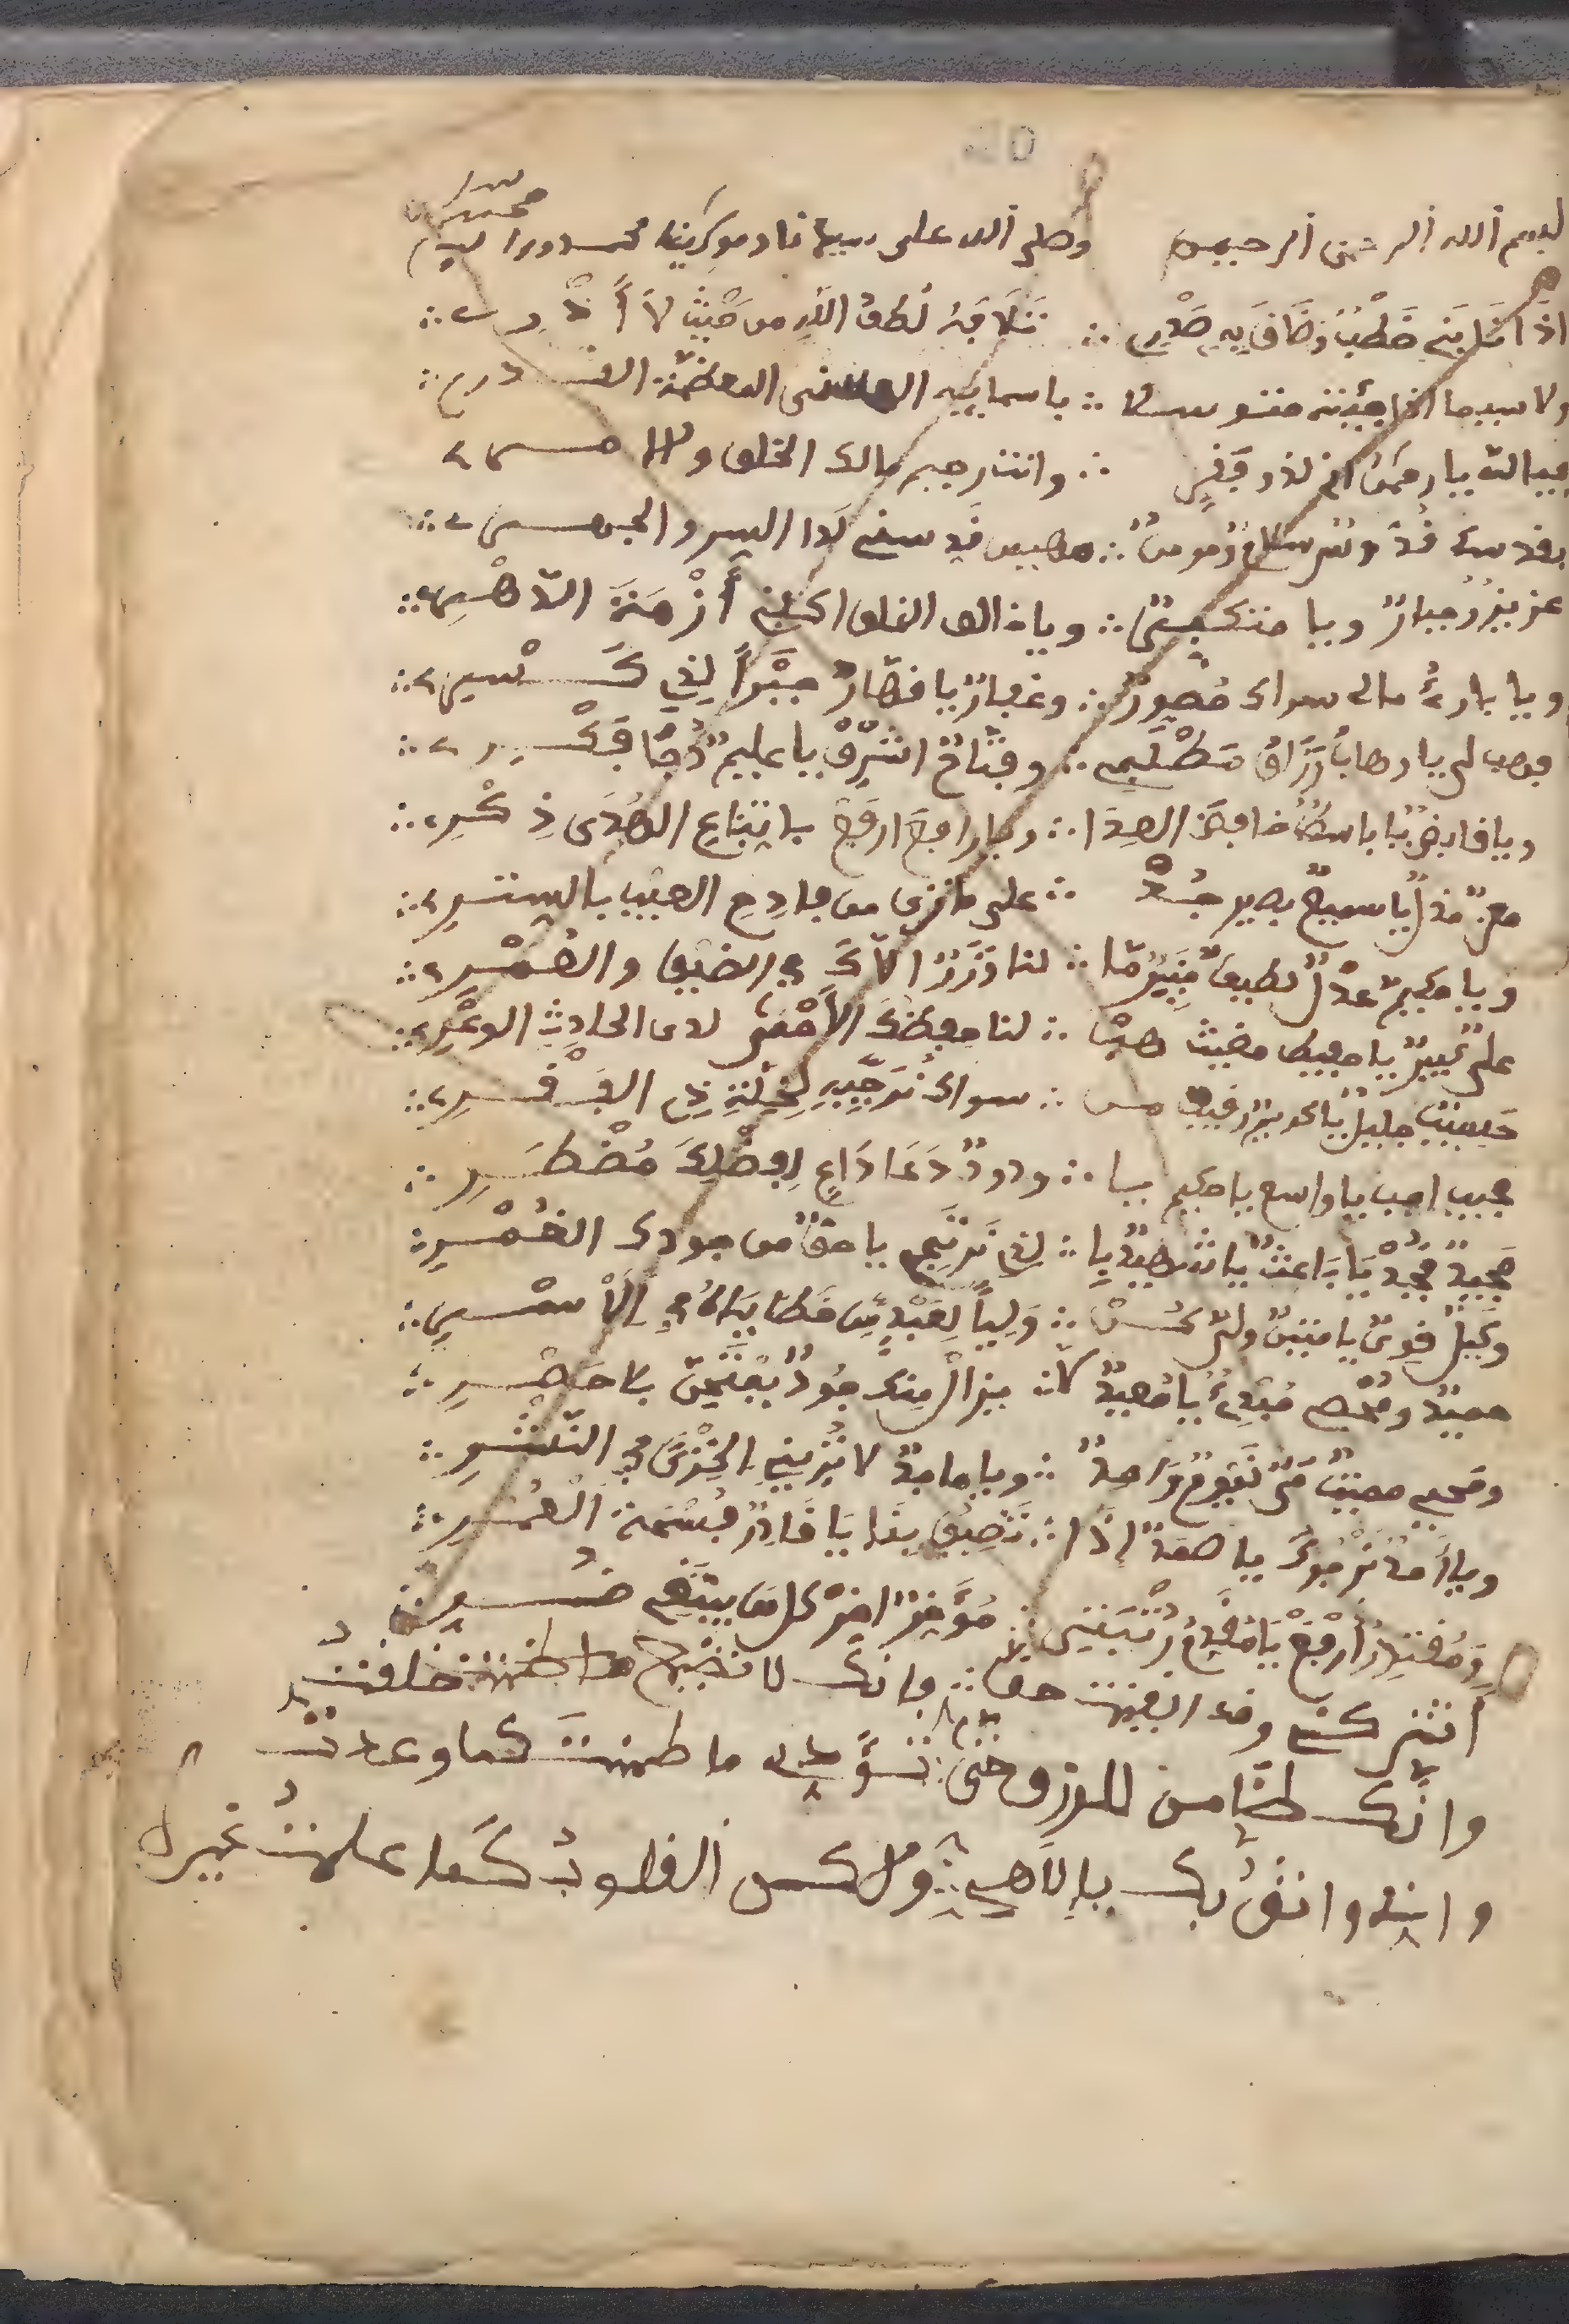 بسم الله الرحمن الرحيم وصلى الله على سيدنا ومولانا محمد
اذا نابني خطب وضاق به صدري ∴ تلافيه لطف الله من حيث لا أدري ∴
ولا سيما اذا جئته متوسلا ∴ باسمايه الحسنى المعظمة القدر ∴
فيا الله يا رحمن اني لذو فقر ∴ وانت رحيم مالك الخلق والامر
بقدسك قد وس سلام ومومن ∴ مهيمن قدسني لدا السر والجهر ∴
عزيز وجبار ويا متكبر ∴ ويا خالق الخلق اكفني أزمة الدهر ∴
ويا بارئ مالي سواك مصور ∴ وغفار يا قهار جبرا لذي كسر ∴
فهب لي يا وهاب رزاق مطلبي ∴ وفتاح اشرق يا عليم دجا فكر ∴
ويا قابض يا باسط خافض العدا ∴ ويا رافع ارفع باتباع الهدى ذكر ∴
معز مذل يا سميع بصير جد ∴ على ما ترى من فادح العيب بالستر ∴
ويا حكيم عدل لطيف خبير ما ∴ لنا وزر الاك في الضيق والعسر ∴
علي كبير يا حفيظ مغيث هب ∴ لنا حفظك الأحمى لدى الحادث الوعر ∴
حسيب جليل يا كريم رقيب من ∴ سواك نرجيه لخلة ذي الفقر ∴
مجيب اجب يا واسع يا حكيم يا ∴ ودود دعا داع لفضلك مضطر ∴
مجيد مجد يا باعث يا شهيد يا ∴ لذي نرتجي يا حق من جودك الغمر ∴
وكيل قوي يا متين ولي كن ∴ وليا لعبد من خطاياه في الأسر ∴
حميد ومحصي مبدئ يا معيد لا ∴ يزال منك جود يعتمن بلا حصر ∴
ومحيي مميت حي قيوم واحد ∴ ويا ماجد لا تريني الخزي في النشر ∴
ويا أحد نرجوك يا صمد إذا ∴ تضيق بنا يا قادر فسحة العمر ∴
ومقتدر ارفع يا مقدم رتبتي ∴ مؤخر اخر كل من يبتغي ضر
أتتركني وقد ايقنت حقا ∴ بانك لا تضيع من خلقت
وانك ضامن للرزق حتى ∴ تؤدي ما ضمنت كما وعدت
واني واثق بك يا إلاهي ∴ ولكن القلوب كما علمت